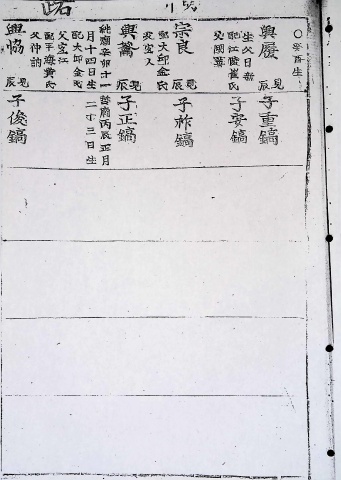 ○癸酉生
興履
見辰
子重鎬
生父日新
配江陵崔氏
子安鎬
宗良
見辰
子祚鎬
配大邱金氏
興燮
辰
子正鎬
純廟辛卯十一
月十四日生
配大邱金氏
父宅江
配平海黃氏
哲廟丙辰正月
二十三日生
興協
見辰
子俊鎬